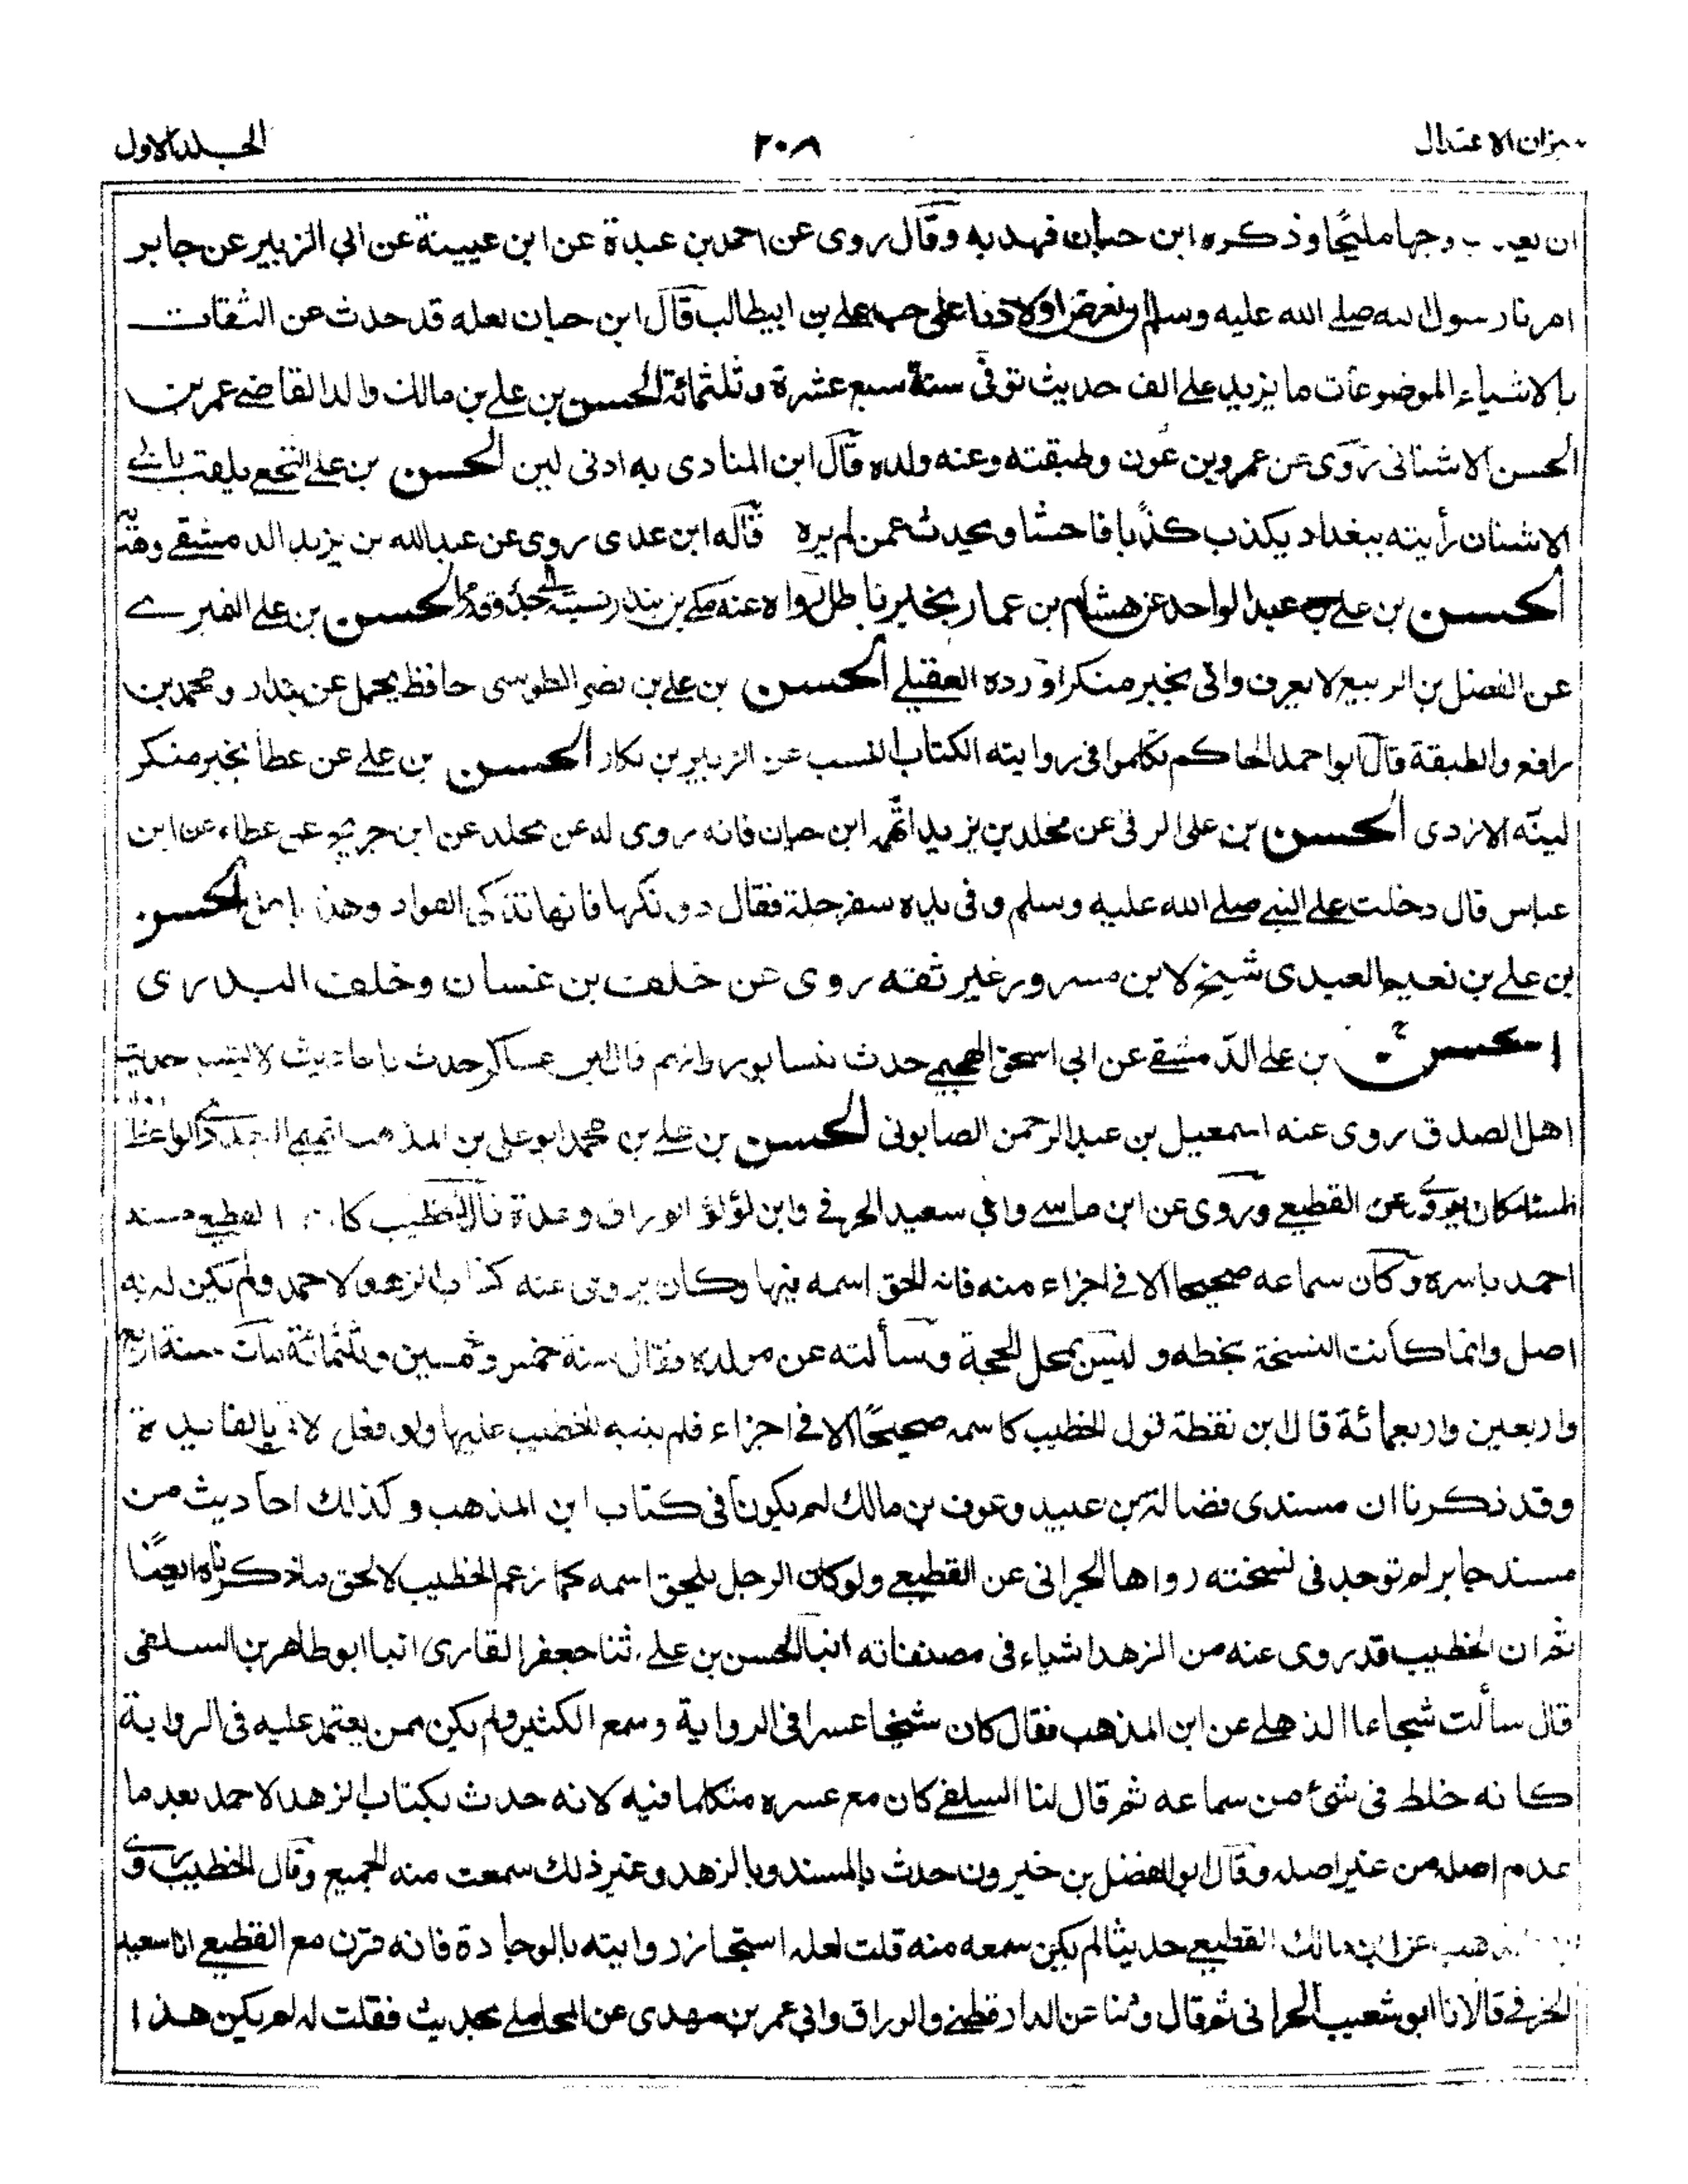 ميزان الاعتدال ٢٠٨ الجلد الاول
ان يعذب وجها مليحا وذكره ابن حبان فهدبه وقال روى عن احمد بن عبدة عن ابن عيينة عن ابي الزبير عن جابر
امرنا رسول الله صلے الله عليه وسلم ان نعرض اولادنا على حب علے بن ابيطالب قال ابن حبان لعله قد حدث عن الثقات
بالاشياء الموضوعات ما يزيد علے الف حديث توفى سنة سبع عشرة وثلثمائة الحسن بن علے بن مالك والد القاضے عمر بن
الحسن الاشنانى روى عن عمرو بن عون وطبقته وعنه ولده قال ابن المنادى به ادنى لين الحسن بن علے النخعے يلقب بابے
الاشنان رأيته ببغداد يكذب كذبا فاحشا ويحدث عمن لم يره قاله ابن عدى روى عن عبدالله بن يزيد الدمشقے
الحسن بن علے بن عبد الواحد عن هشام بن عمار بخبر باطل رواه عنه مكے بن بندار الحسن بن علے
عن الفضل بن الربيع لا يعرف واتى بخبر منكر اورده العقيلے الحسن بن علے بن نصر الطوسى حافظ يحمل عن بندار ومحمد بن
رافع والطبقة قال ابو احمد الحاكم تكلموا فى روايته الكتاب النسب عن الزبير بن بكار الحسن بن علے عن عطأ بخبر منكر
لينه الازدى الحسن بن على الرقى عن مخلد بن يزيد اتهمه ابن حبان فانه روى له عن مخلد عن ابن جريج عن عطاء عن ابن
عباس قال دخلت علے النبے صلے الله عليه وسلم وفى يده سفرجلة فقال دونكها فانها تذكى الفواد وهذا باطل الحسن
بن علے بن نعيم العبدى شيخ لابن مسرور غير ثقه روى عن خلف بن غسان وخلف البدرى
الحسن بن علے الدمشقے عن ابى اسحق حدث بنسابور قال ابن عساكر حدث باحاديث لا تشبه حديث
اهل الصدق روى عنه اسمعيل بن عبد الرحمن الصابونى الحسن بن علے بن محمد ابو على بن المذهب التميمے الواعظ
عن القطيعے وروى عن ابن ماسے وابي سعيد الحرفے وابن لؤلؤ الوراق وعدة قال الخطيب كان القطيعے مسند
احمد باسره وكان سماعه صحيحا الا فى اجزاء منه فانه الحق اسمه فيها وكان يروى عنه كتاب الزهد لاحمد ولم يكن له به
اصل وانما كانت النسخة بخطه وليس بمحل الحجة وسألته عن مولده فقال سنة خمس وخمسين وثلثمائة مات سنة اربع
واربعين واربعمائة قال ابن نقطة قول الخطيب كان سمه صحيحا الا فى اجزاء فلم ينبه الخطيب عليها ولو فعل لاتى بالفائدة
وقد ذكرنا ان مسندى فضالة بن عبيد وعوف بن مالك لم يكونا فى كتاب ابن المذهب وكذلك احاديث من
مسند جابر لم توجد فى نسخته رواها الحرانى عن القطيعے ولو كان الرجل يلحق اسمه كما زعم الخطيب لالحق ما ذكرناه ايضا
ثم ان الخطيب قد روى عنه من الزهد اشياء فى مصنفاته انبا الحسن بن علے ثنا جعفر القارى انبا ابو طاهر بن السلفى
قال سألت شجاعا الذهلے عن ابن المذهب فقال كان شيخا عسرا فى الرواية وسمع الكثير ولم يكن ممن يعتمد عليه فى الرواية
كانه خلط فى شئ من سماعه ثم قال لنا السلفے كان مع عسره متكلما فيه لانه حدث بكتاب الزهد لاحمد بعد ما
عدم اصله من غير اصله وقال ابو الفضل بن خيرون حدث بالمسند وبالزهد وغير ذلك سمعت منه الجميع وقال الخطيب روى
ابن المذهب عن ابن مالك القطيعے حديثا لم يكن سمعه منه قلت لعله استجاز روايته بالوجادة فانه قرن مع القطيعے ابا سعيد
الحرفے قالا انا ابو شعيب الحرانى ثم قال وثنا عن الدارقطنے والوراق وابي عمر بن مهدى عن المحاملے بحديث فقلت له لم يكن هذا